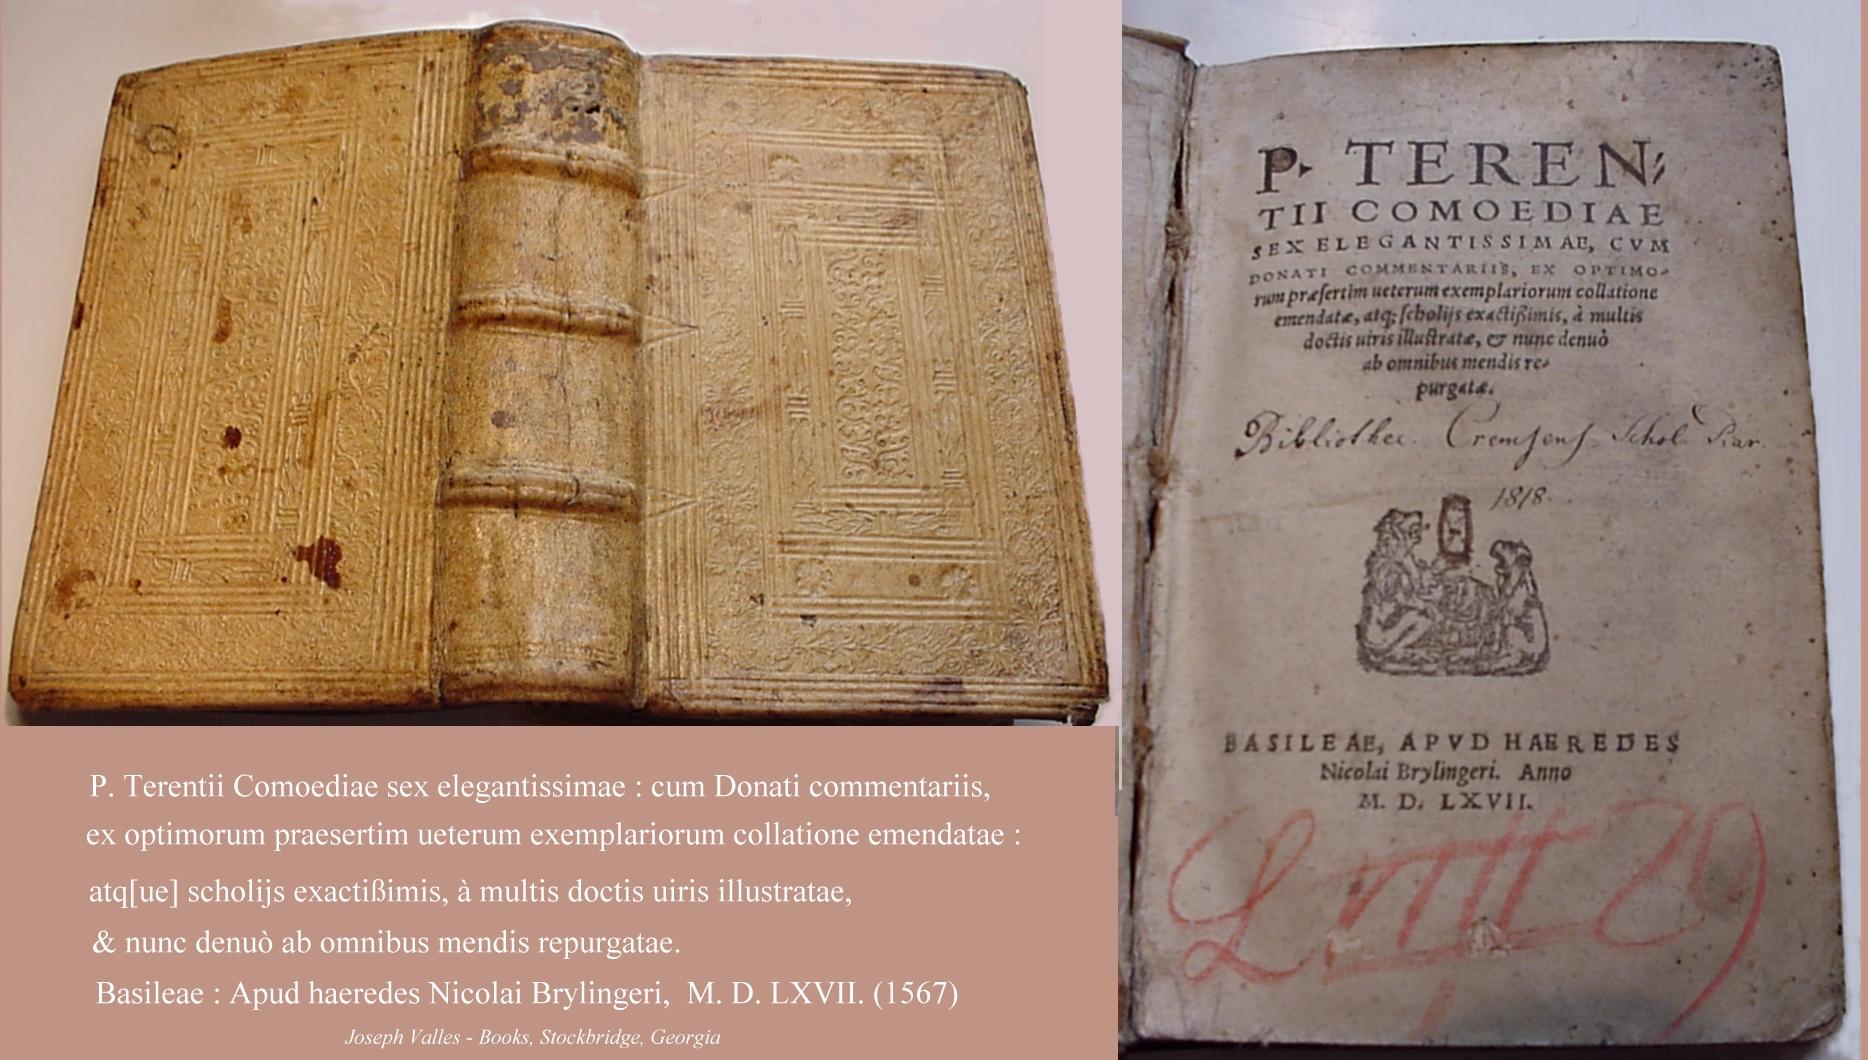 P. Terentii Comoediae sex elegantissimae : cum Donati commentariis,
ex optimorum praesertim ueterum exemplariorum collatione emendatae :
atq[ue] scholijs exactißimis, à multis doctis uiris illustratae,
& nunc denuò ab omnibus mendis repurgatae.
Basileae : Apud haeredes Nicolai Brylingeri, M. D. LXVII. (1567)
Joseph Valles - Books, Stockbridge, Georgia
P. TEREN⸗
TII COMOEDIAE
SEX ELEGANTISSIMAE, CVM
DONATI COMMENTARIIS, EX OPTIMO-
rum præsertim ueterum exemplariorum collatione
emendatæ, atq; scholijs exactißimis, à multis
doctis uiris illustratæ, & nunc denuò
ab omnibus mendis re-
purgatæ.
Bibliothec. Cremsens. Schol. Piar.
1818.
BASILEAE, APVD HAEREDES
Nicolai Brylingeri. Anno
M. D. LXVII.